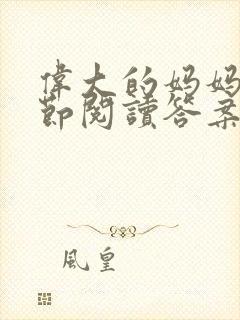 偉大的妈妈
節閱讀答案
風皇